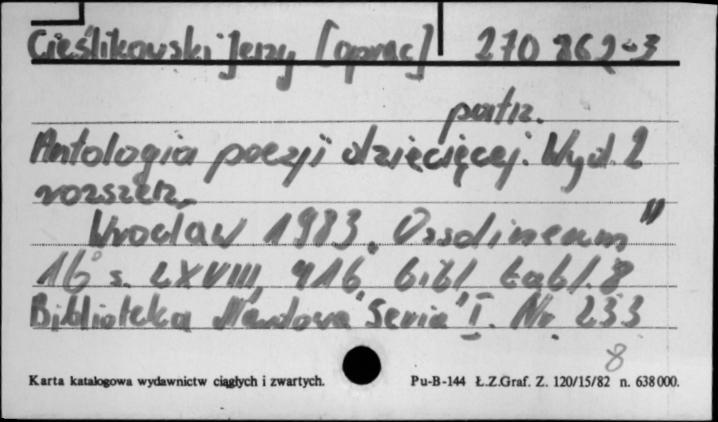 Cieślikowski Jerzy [oprac] 270 862-3
patrz.
Antologia poezji dziecięcej. Wyd. 2
rozszerz.
Wrocław 1983 "Ossolineum"
16° s. LXVIII, 416, bibl. tabl. 8
Biblioteka Narodowa Seria I. Nr. 233
8
Karta katalogowa wydawnictw ciągłych i zwartych. Pu-B-144 Ł.Z.Graf. Z. 120/15/82 n. 638 000.